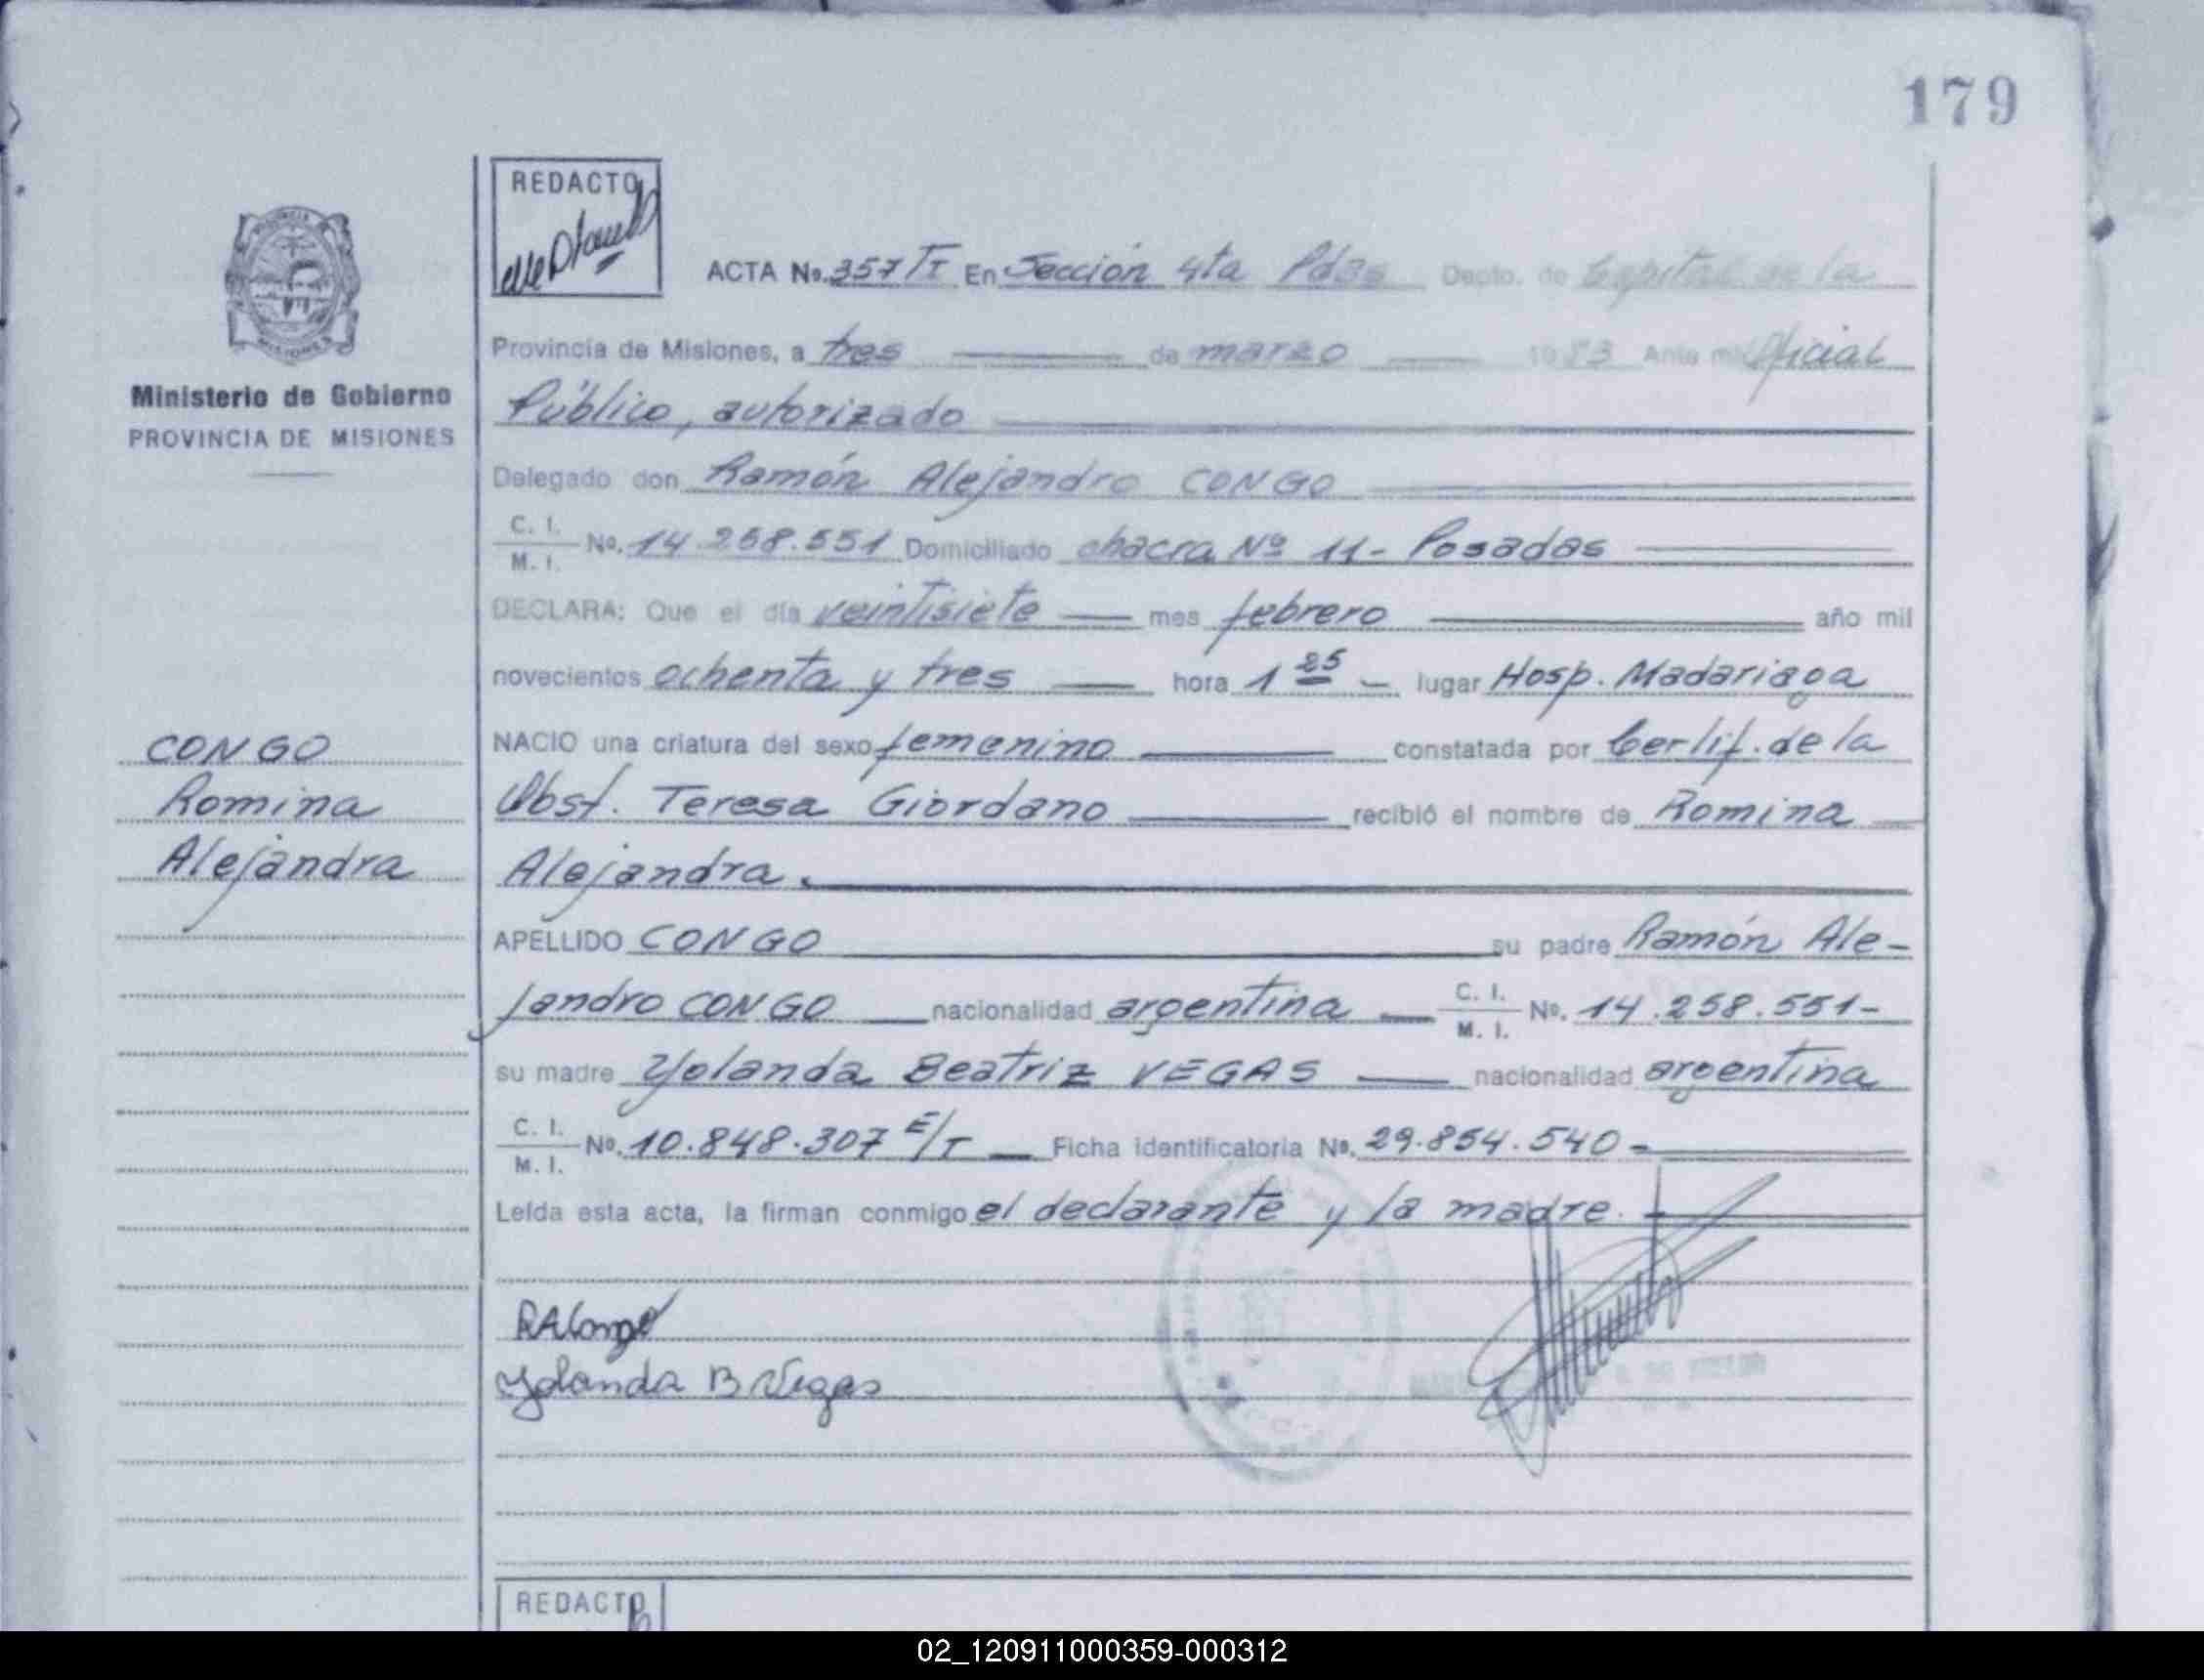 179
REDACTO
ACTA No. 357/I En Sección 4ta Pdas Depto. de Capital de la
Provincia de Misiones, a tres de marzo 1983 Ante mi Oficial
Público, autorizado
Delegado don Ramón Alejandro CONGO
C. I. / M. I. No. 14.258.551 Domiciliado chacra Nº 11 - Posadas
DECLARA: Que el día veintisiete mes febrero año mil
novecientos ochenta y tres hora 1 25 - lugar Hosp. Madariaga
NACIO una criatura del sexo femenino constatada por Certif. de la
Obst. Teresa Giordano recibió el nombre de Romina
Alejandra.
APELLIDO CONGO su padre Ramón Ale-
jandro CONGO nacionalidad argentina C. I. / M. I. No. 14.258.551-
su madre Yolanda Beatriz VEGAS nacionalidad argentina
C. I. / M. I. No. 10.848.307 E/T Ficha identificatoria No. 29.854.540-
Leída esta acta, la firman conmigo el declarante y la madre.
RACongo
Yolanda B Vegas
REDACTO
Ministerio de Gobierno
PROVINCIA DE MISIONES
CONGO
Romina
Alejandra
02_120911000359-000312